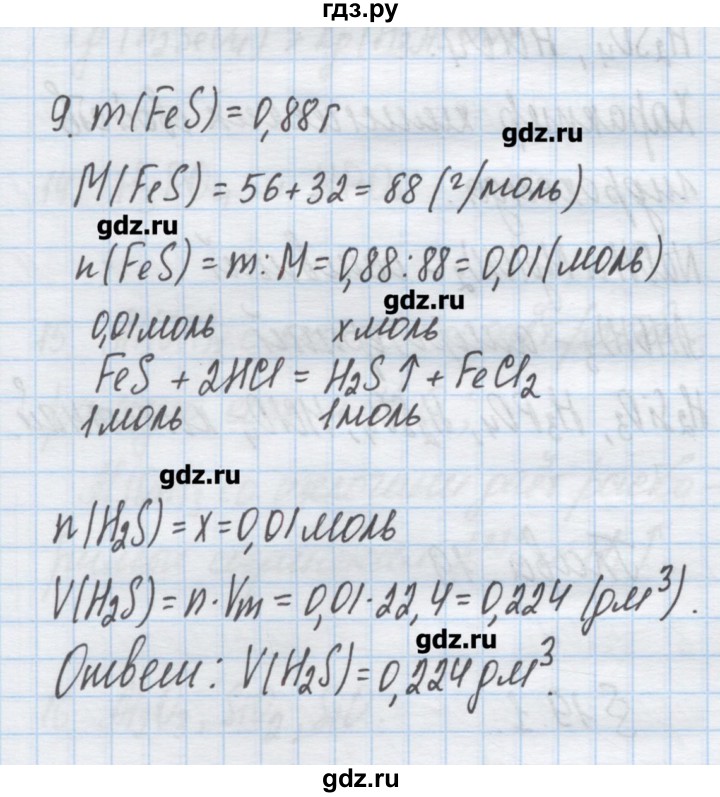 гдз.ру
9. m(FeS) = 0,88г
gdz.ru
M(FeS) = 56+32 = 88 (г/моль)
gdz.ru
n(FeS) = m:M = 0,88:88 = 0,01 (моль)
gdz.ru
0,01 моль x моль
FeS + 2HCl = H₂S↑ + FeCl₂
1 моль 1 моль
gdz.ru
n(H₂S) = x = 0,01 моль
V(H₂S) = n·Vm = 0,01·22,4 = 0,224 (дм³).
gdz.ru
Ответ: V(H₂S) = 0,224 дм³.
gdz.ru